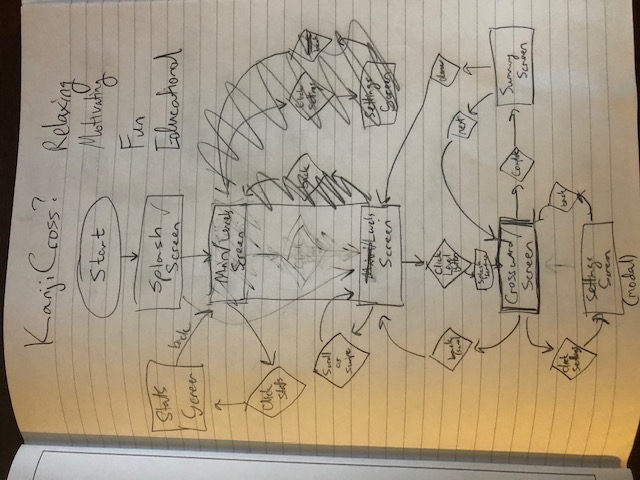 KanjiCross?
Relaxing
Motivating
Fun
Educational
Start
Splash
Screen
Stats
Screen
back
Main/Levels
Screen
Click
Stats
Click
Play
back
Click
settings
back
Settings
Screen
Scroll
or
swipe
Main/Levels
Screen
Click
Level
Button
Splash
Screen
back
next
done
Crossword
Screen
Complete
Summary
Screen
Click
settings
back
Settings
Screen
(modal)